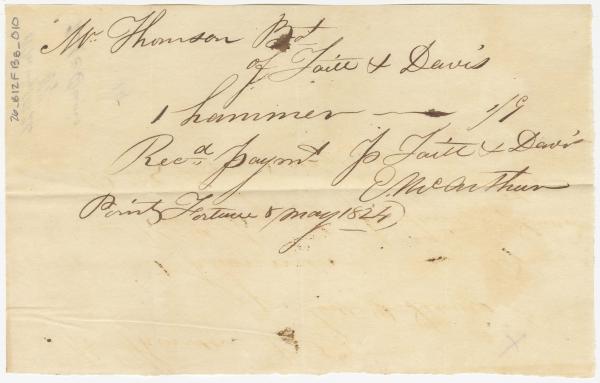 Mr. Thomson Bot
of Taitt & Davis
1 hammer — 1/9
Recd. paymt. Jp Taitt & Davis
E McArthur
Point Fortune 8 may 1824
76-612F B8-010